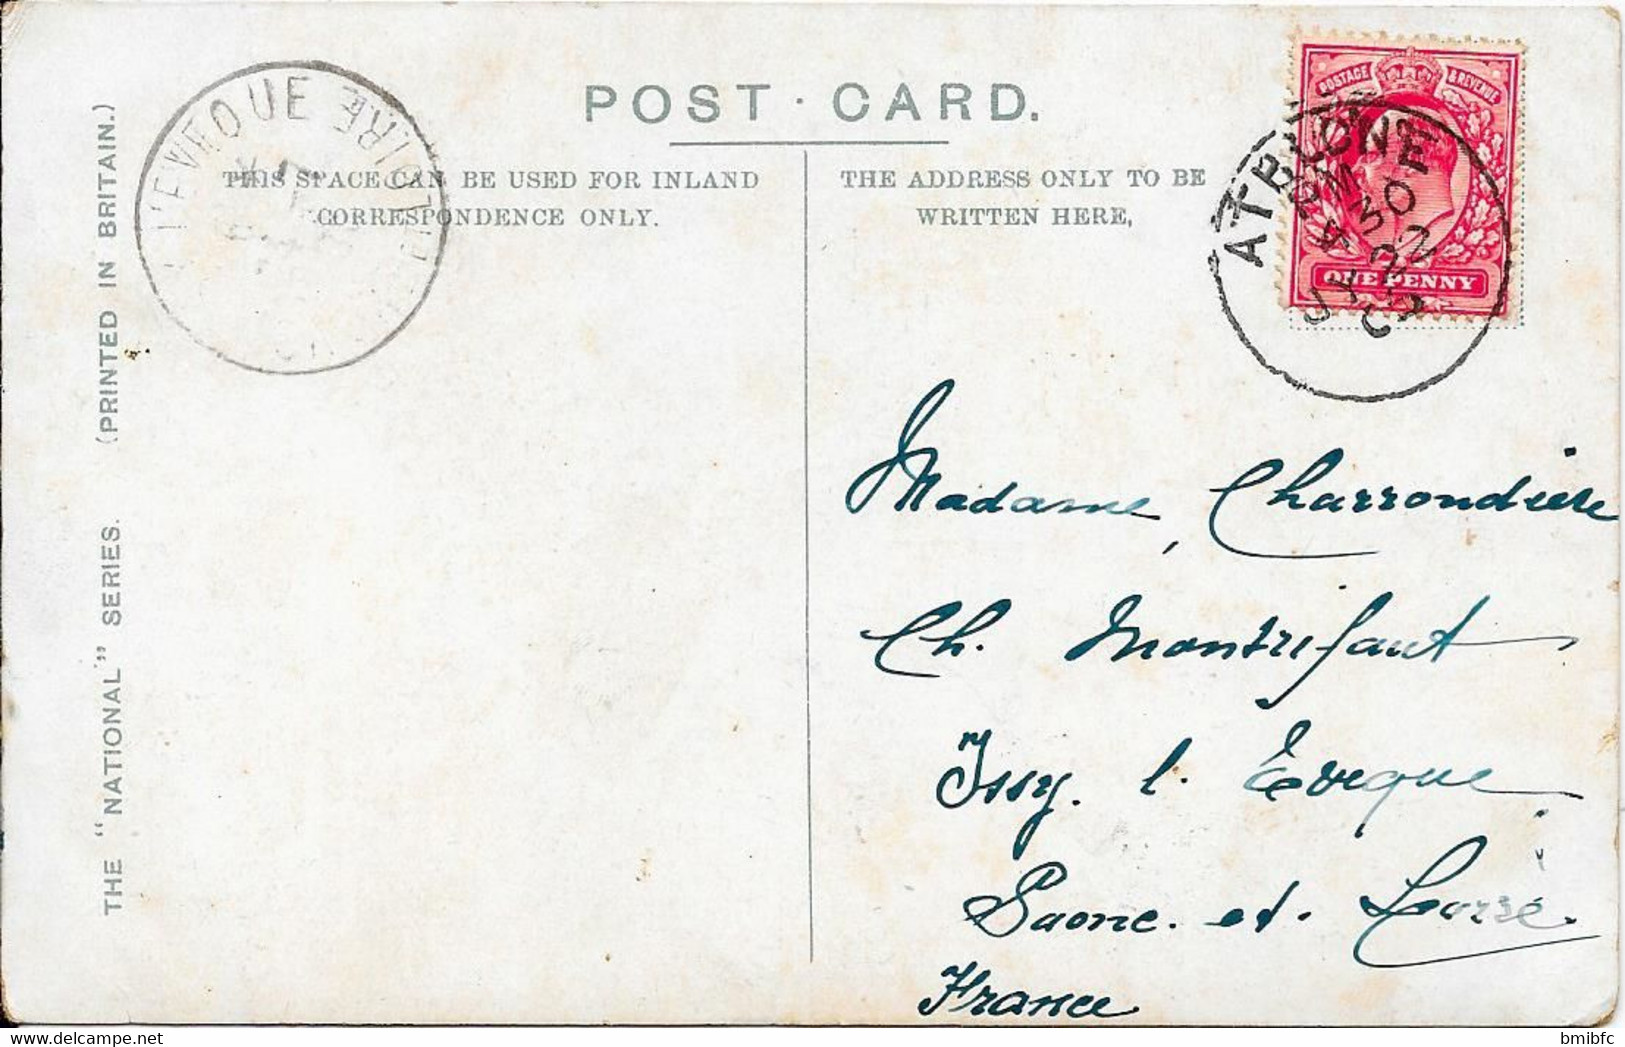 POST · CARD.
THIS SPACE CAN BE USED FOR INLAND
CORRESPONDENCE ONLY.
THE ADDRESS ONLY TO BE
WRITTEN HERE,
THE "NATIONAL" SERIES. (PRINTED IN BRITAIN.)
L'EVEQUE
LOIRE
POSTAGE & REVENUE
ONE PENNY
ATHLONE
30
JY 22
Madame, Charrondière
Ch. Montrifaut
Issy. l. Evêque
Saone. et. Loire.
France
bmibfc